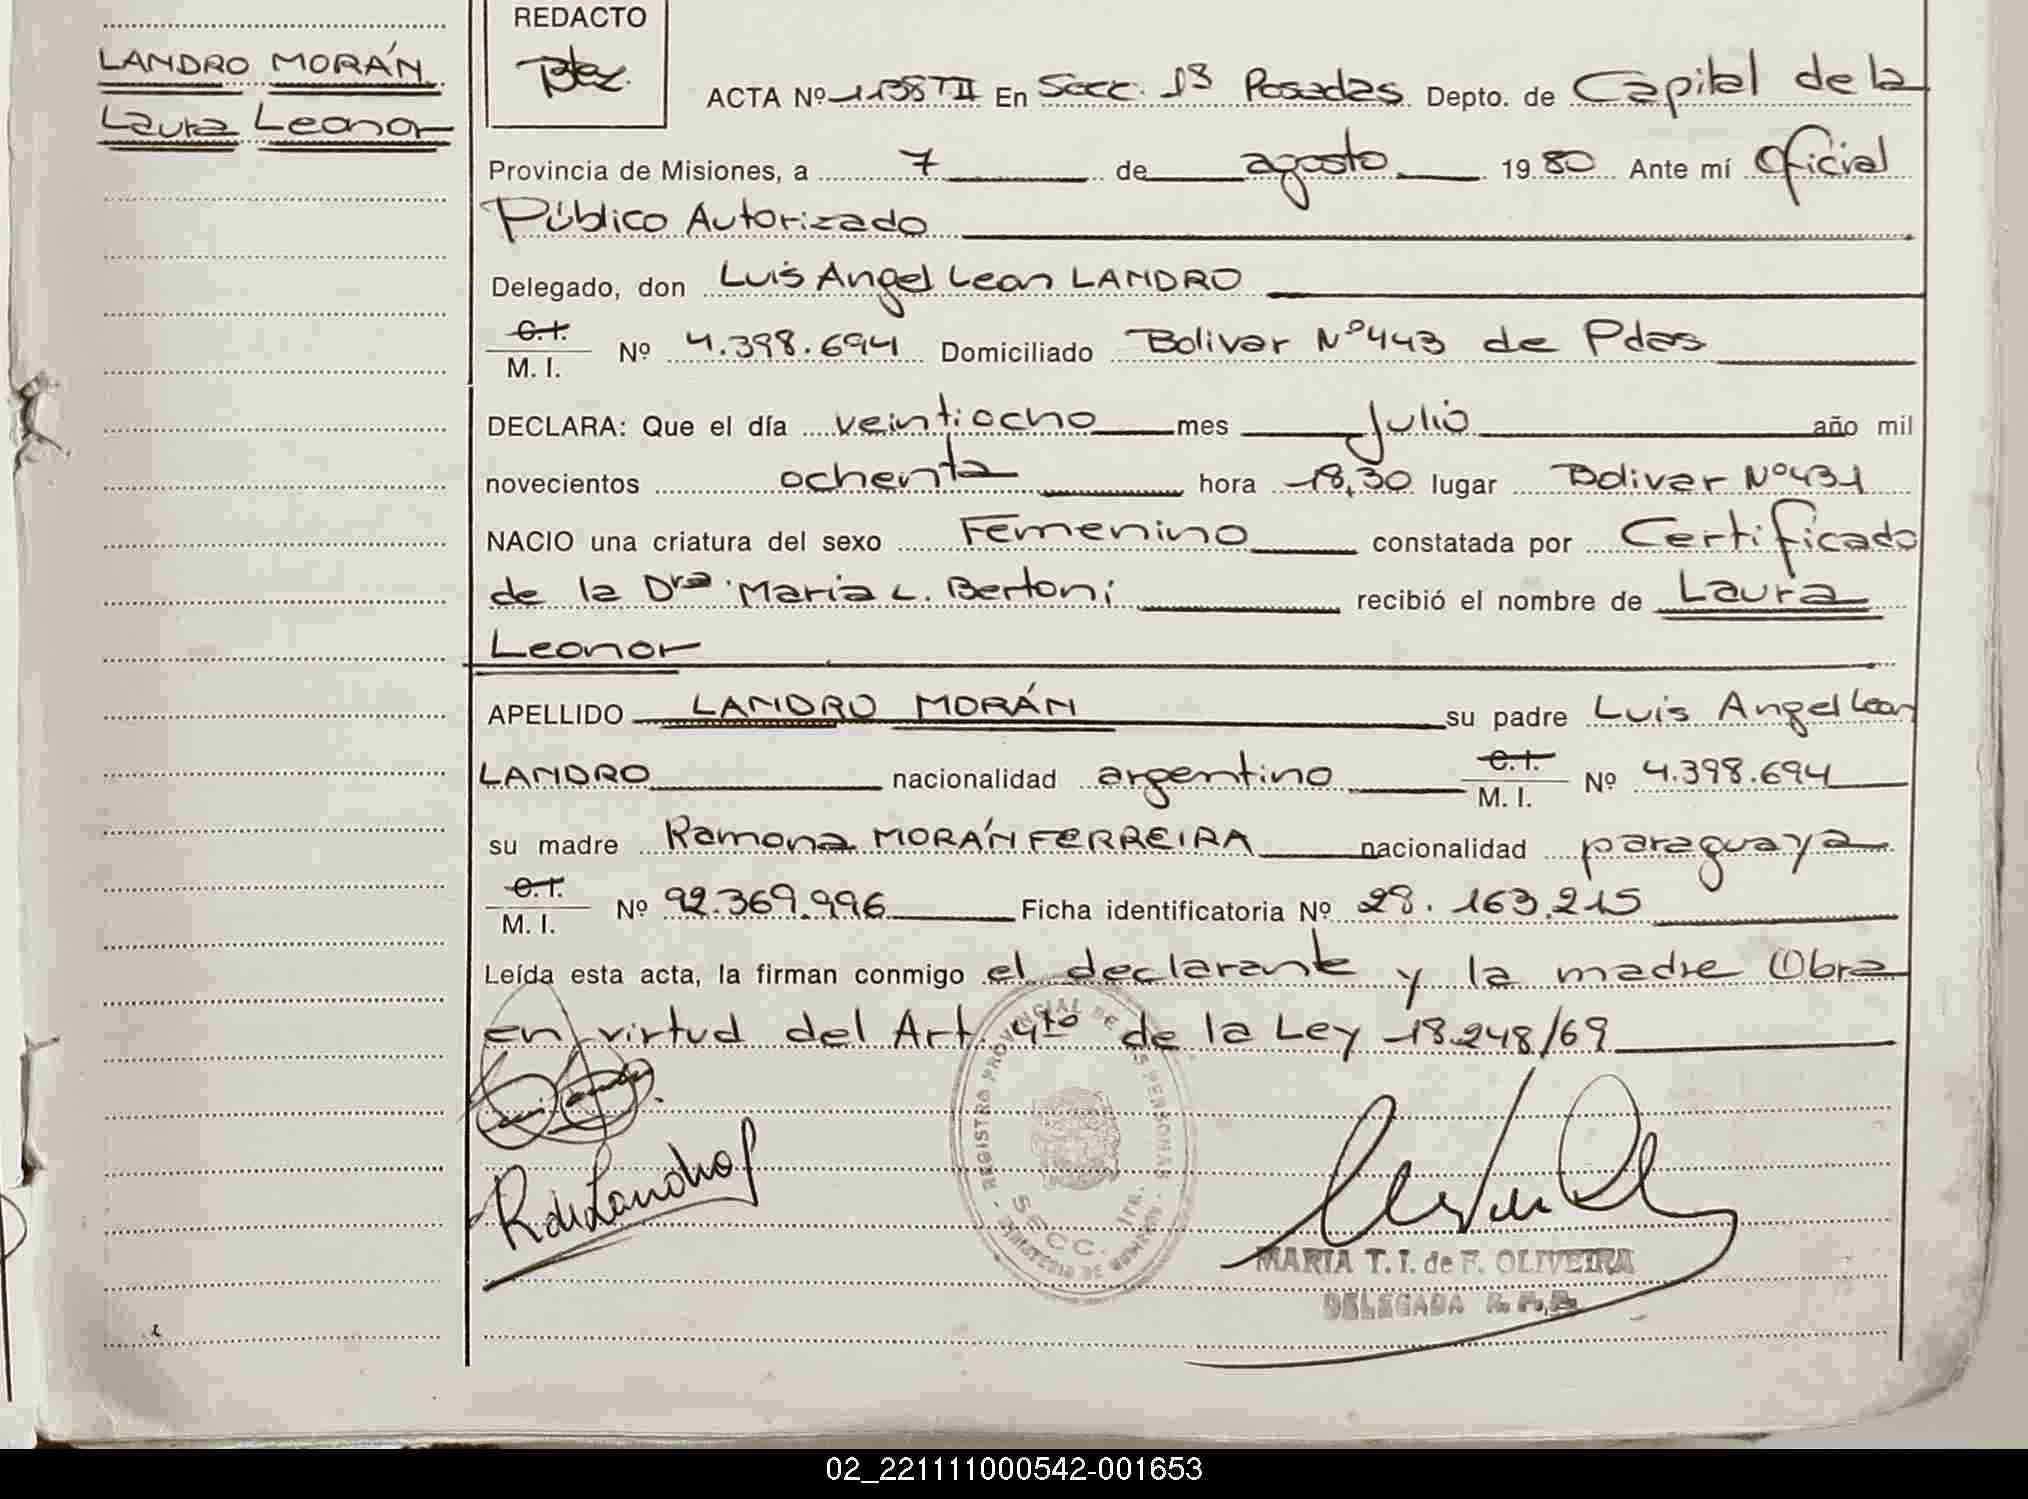 LANDRO MORÁN
Laura Leonor
REDACTO
ACTA Nº 1138 TII En Secc. 1ª Posadas Depto. de Capital de la
Provincia de Misiones, a 7 de agosto 1980 Ante mí Oficial
Público Autorizado
Delegado, don Luis Angel Lean LANDRO
C.I. / M. I. Nº 4.398.694 Domiciliado Bolivar Nº 443 de Pdas
DECLARA: Que el día veintiocho mes Julio año mil
novecientos ochenta hora 18,30 lugar Bolivar Nº 431
NACIO una criatura del sexo Femenino constatada por Certificado
de la Dra. María L. Bertoni recibió el nombre de Laura
Leonor
APELLIDO LANDRO MORÁN su padre Luis Angel Lean
LANDRO nacionalidad argentino C.I. / M. I. Nº 4.398.694
su madre Ramona MORÁN FERREIRA nacionalidad paraguaya
C.I. / M. I. Nº 92.369.996 Ficha identificatoria Nº 28.163.215
Leída esta acta, la firman conmigo el declarante y la madre Obra
en virtud del Art. 4to de la Ley 18.248/69
REGISTRO PROVINCIAL DE LAS PERSONAS
SECC. 1ra.
R de Landro
MARIA T. I. de F. OLIVEIRA
DELEGADA R. P. P.
02_221111000542-001653